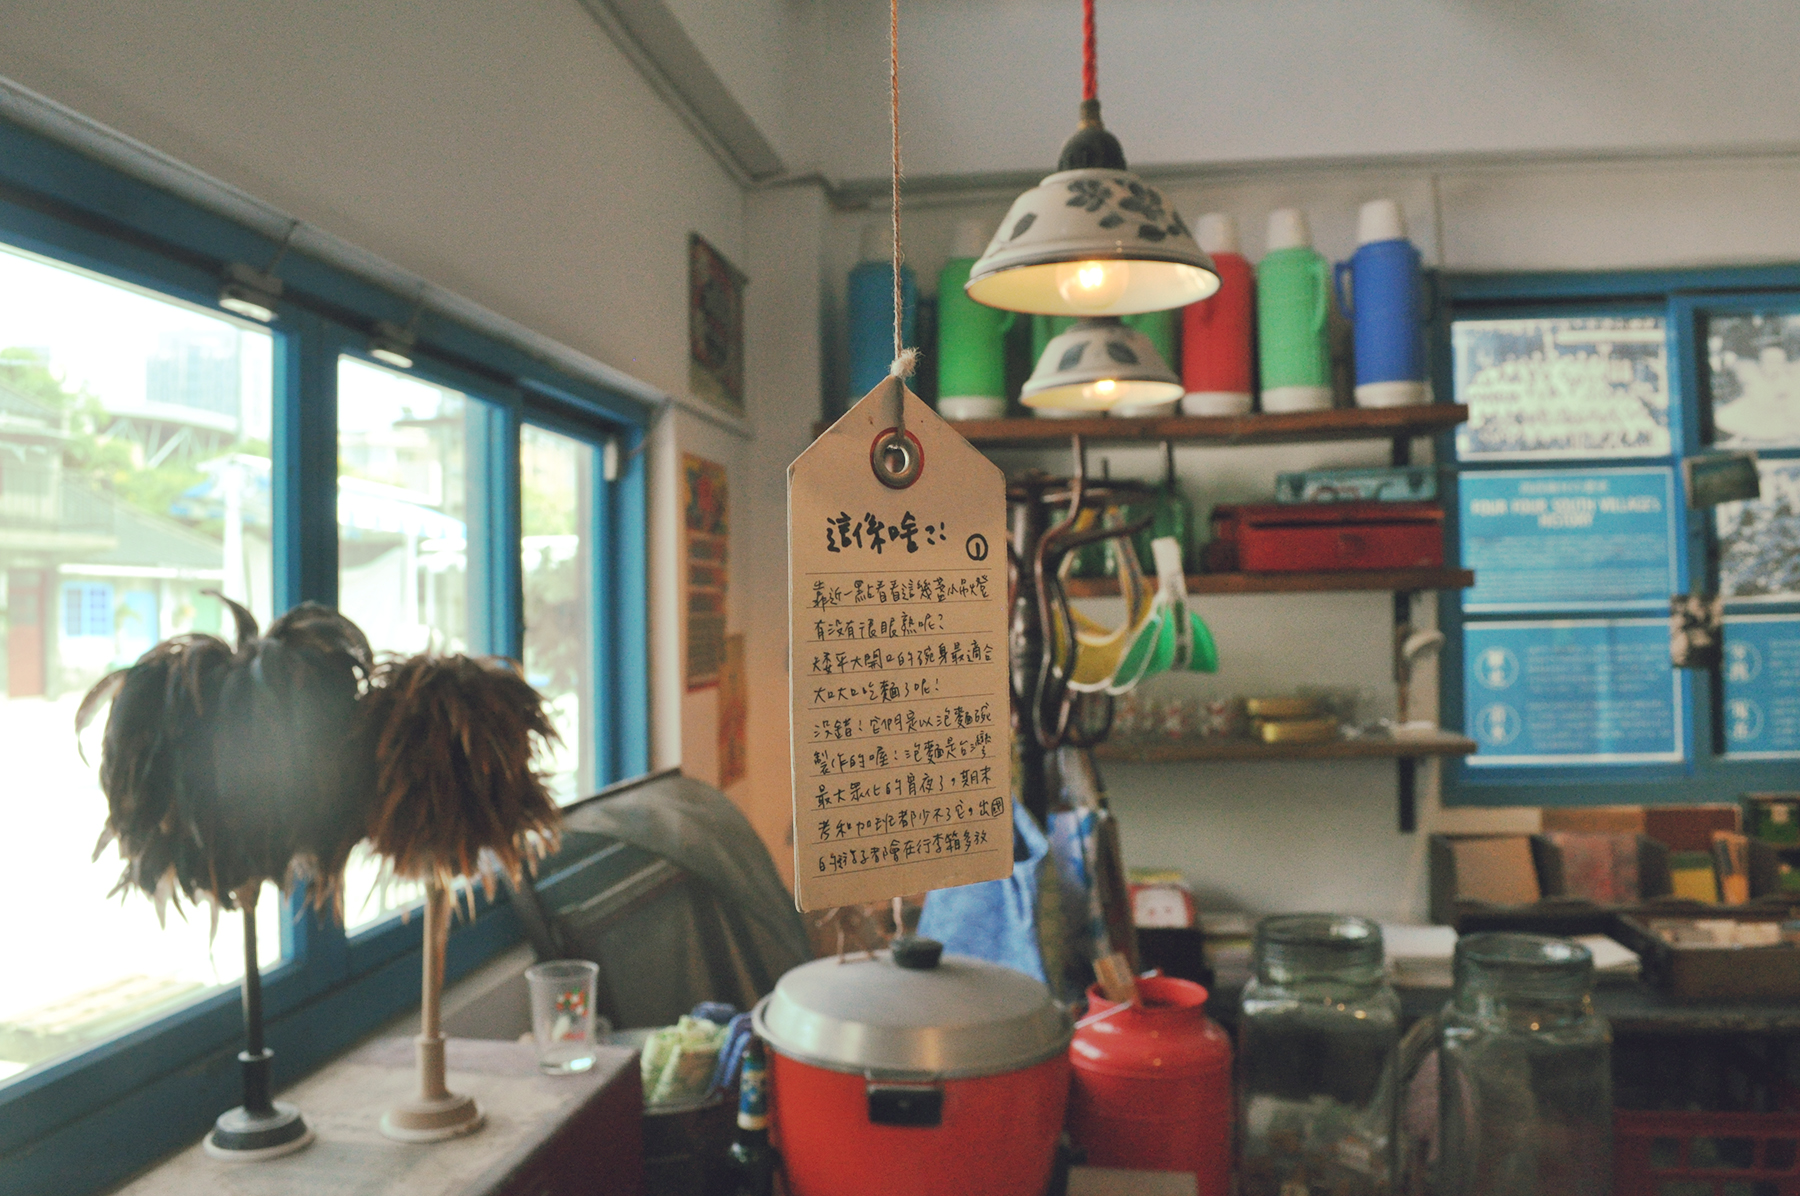 這係啥??
①
靠近一點看看這幾盞小吊燈
有沒有很眼熟呢?
矮平大開口的碗身最適合
大口大口吃麵了呢!
沒錯!它們是以泡麵碗
製作的喔!泡麵是台灣
最大眾化的宵夜了,期末
考和加班都少不了它,出國
的遊子都會在行李箱多放
FOUR FOUR SOUTH VILLAGE's
HISTORY